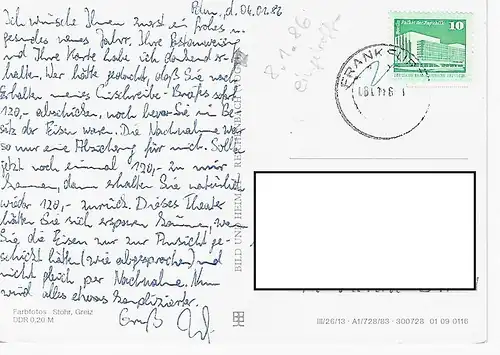 Pln., d. 06.01.86
Ich wünsche Ihnen zuerst ein frohes u.
gesundes neues Jahr. Ihre Postanweisung
und Ihre Karte habe ich dankend er-
halten. Wer hätte gedacht, daß Sie nach
Erhalten meines Einschreibe-Briefes sofort
120,- abschicken, noch bevor Sie im Be-
sitz der Eisen waren. Die Nachnahme war
so nur eine Absicherung für mich. Sollte
jetzt noch einmal 120,- zu mir
kommen, dann erhalten Sie natürlich
wieder 120,- zurück. Dieses Theater
hätten Sie sich ersparen können, wenn
Sie die Eisen nur zur Ansicht ge-
schickt hätten (wie abgesprochen) und
nicht gleich per Nachnahme. Nun
wird alles etwas komplizierter.
Gruß
Farbfotos Stöhr, Greiz
DDR 0,20 M
BILD UND HEIMAT REICHENBACH
8.1.86
FRANKFURT
10
III/26/13 · A1/728/83 · 300728 01 09 0116